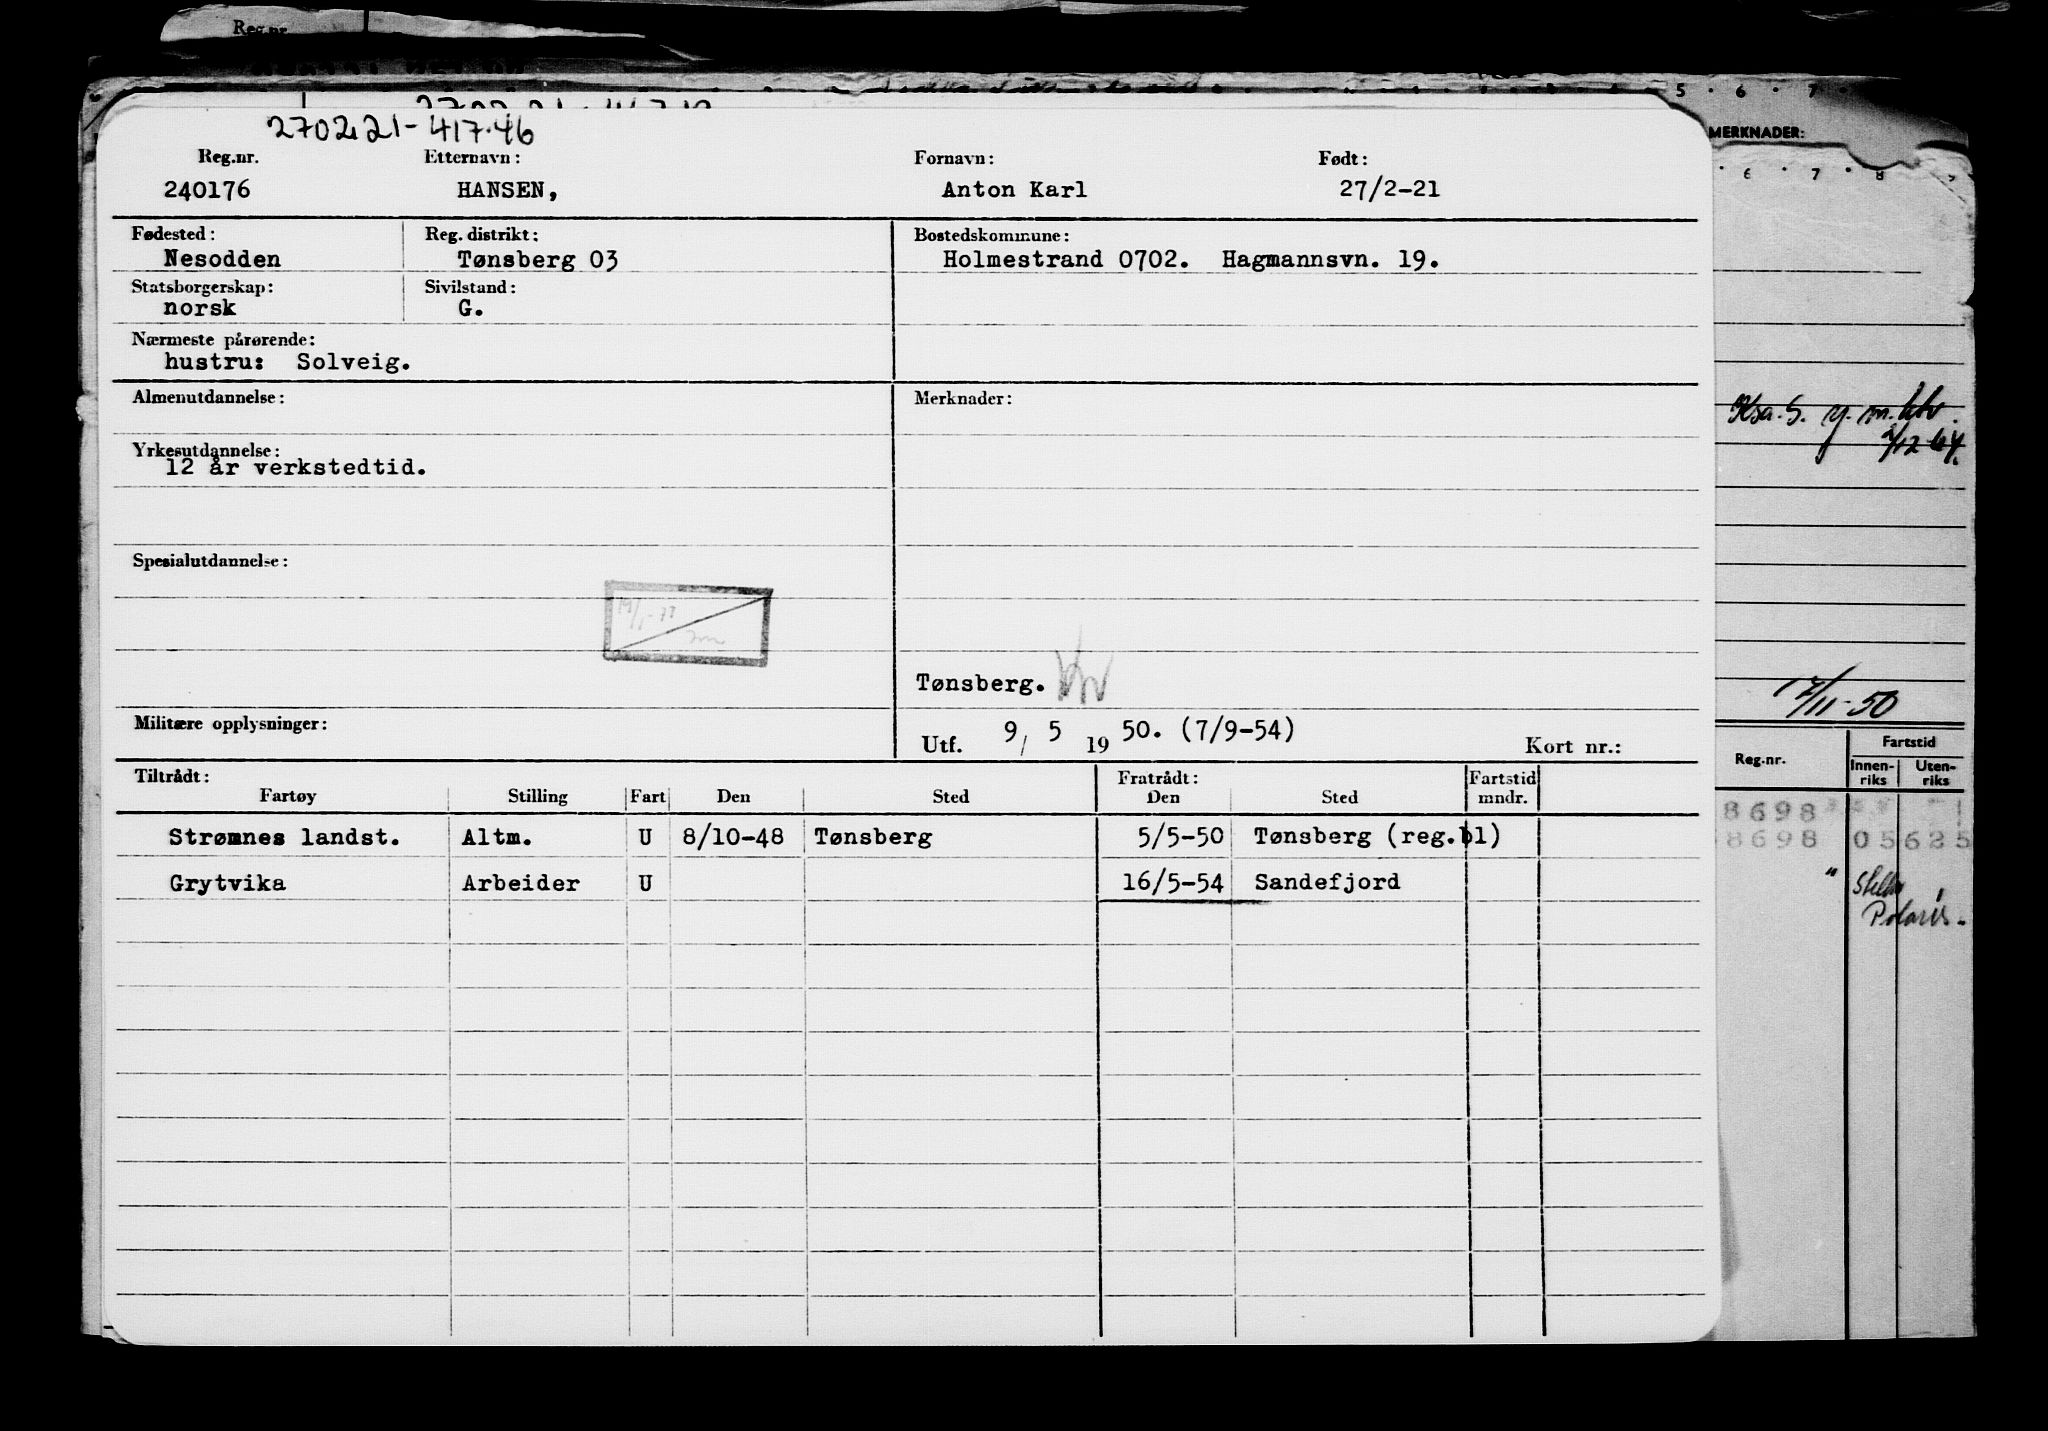 Reg.nr.
270221-417.46
Reg.nr. Etternavn: Fornavn: Født:
240176 HANSEN, Anton Karl 27/2-21
Fødested: Reg. distrikt: Bostedskommune:
Nesodden Tønsberg 03 Holmestrand 0702. Hagmannsvn. 19.
Statsborgerskap: Sivilstand:
norsk G.
Nærmeste pårørende:
hustru: Solveig.
Almenutdannelse: Merknader:
Yrkesutdannelse:
12 år verkstedtid.
Spesialutdannelse:
Tønsberg.
Militære opplysninger:
Utf. 9/ 5 19 50. (7/9-54) Kort nr.:
Tiltrådt: Fratrådt: Fartstid
Fartøy Stilling Fart Den Sted Den Sted mndr.
Strømnes landst. Altm. U 8/10-48 Tønsberg 5/5-50 Tønsberg (reg.bl)
Grytvika Arbeider U 16/5-54 Sandefjord
5 · 6 · 7 ·
MERKNADER:
· 6 · 7 · 8
17/11-50
Reg.nr. Fartstid
Innen-riks Uten-riks
8698
8698 05625
"
Polaris.